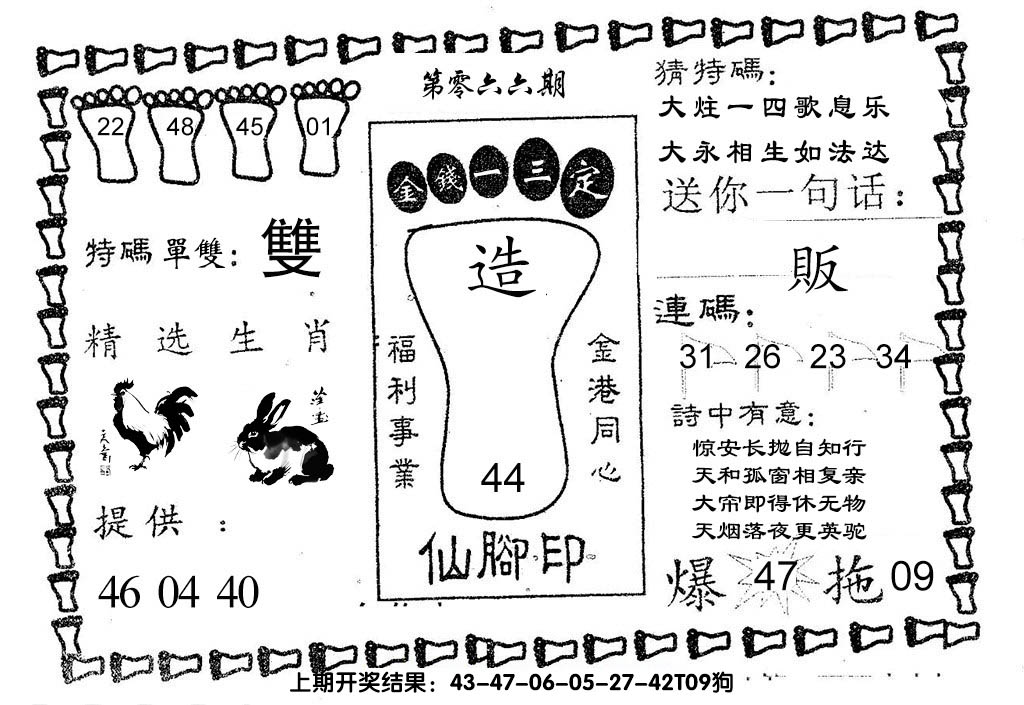 第零六六期
22 48 45 01
特碼單雙：雙
精选生肖
提供：
46 04 40
金錢一三定
造
福利事業
金港同心
44
仙腳印
猜特碼：
大炷一四歌息乐
大永相生如法达
送你一句话：
販
連碼：
31 26 23 34
詩中有意：
惊安长抛自知行
天和孤窗相复亲
大帘即得休无物
天烟落夜更英驼
爆 47 拖 09
上期开奖结果：43-47-06-05-27-42T09狗